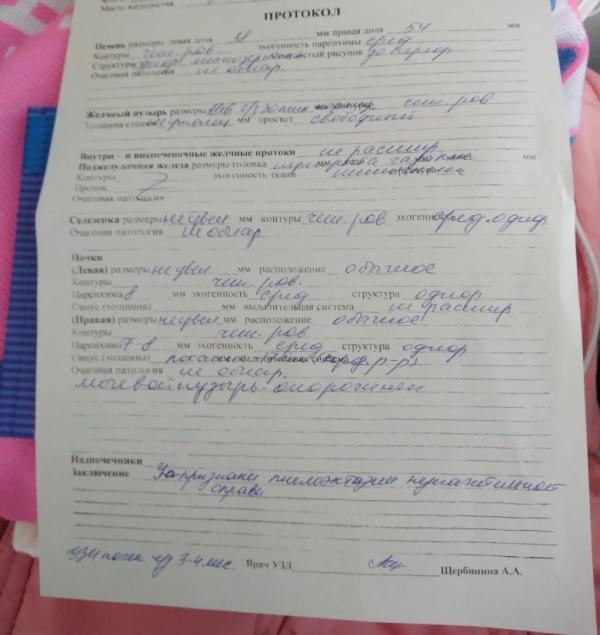 Место жительства
ПРОТОКОЛ
Печень размеры левая доля 38 мм правая доля 54 мм
Контуры чет. ров. эхогенность паренхимы сред
Структура рисунок
Очаговая патология не обнар.
Желчный пузырь размеры чет. ров
Толщина стенки мм просвет свободный
Внутри – и внепеченочные желчные протоки не расшир
Поджелудочная железа размеры головка мм
Контуры эхогенность ткани
Проток
Очаговая патология
Селезенка размеры не увел мм контуры чет. ров. эхогенность сред. однор.
Очаговая патология не обнар
Почки
(Левая) размеры не увел мм расположение обычное
Контуры чет. ров.
Паренхима 8 мм эхогенность сред структура однор
Синус (толщина) мм выделительная система не расшир.
(Правая) размеры не увел мм расположение обычное
Контуры чет. ров
Паренхима 7-8 мм эхогенность сред структура однор
Синус (толщина)
Очаговая патология не обнар.
мочевой пузырь - опорожнен
Надпочечники
Заключение Уз-признаки пиелоэктазии незначительной
справа
узи почек ч/з 3-4 мес. Врач УЗД Щербинина А.А.